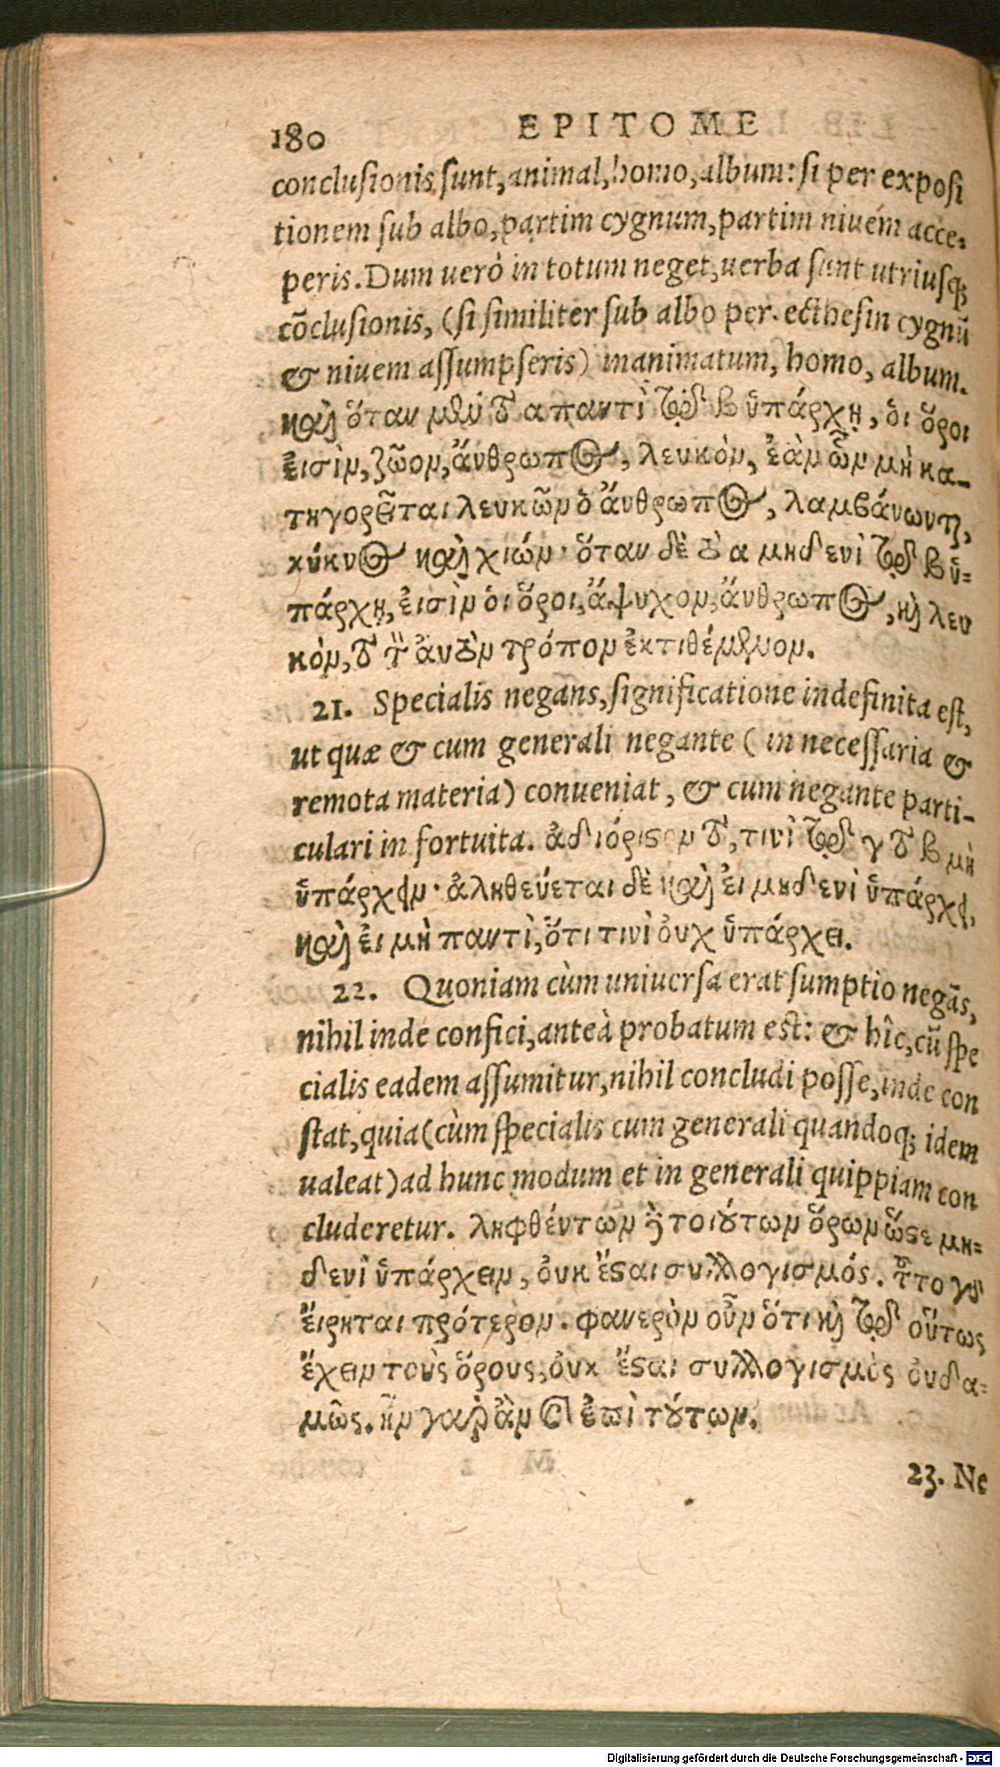 180 EPITOME
conclusionis sunt, animal, homo, album: si per exposi
tionem sub albo, partim cygnum, partim niuem acce-
peris. Dum uerò in totum neget, uerba sunt utriusq;
cōclusionis, (si similiter sub albo per ecthesin cygnū
& niuem assumpseris) inanimatum, homo, album.
καὶ ὅταν μὲν τὸ α παντὶ τῷ β ὑπάρχῃ, ὁι ὅροι
ἐισὶν, ζῶον, ἄνθρωπος, λευκὸν, ἐὰν ὧν μὴ κα-
τηγορεῖται λευκῶν ὁ ἄνθρωπος, λαμβάνωνται,
κύκνος καὶ χιών· ὅταν δὲ τὸ α μηδενὶ τῷ β ὑ-
πάρχῃ, ἐισὶν ὁι ὅροι, ἄψυχον, ἄνθρωπος, καὶ λευ
κὸν, τὸν αὐτὸν τρόπον ἐκτιθέμενον.
21. Specialis negans, significatione indefinita est,
ut quæ & cum generali negante (in necessaria &
remota materia) conueniat, & cum negante parti-
culari in fortuita. ἀδιόριστον τὸ, τινὶ τῷ γ τὸ β μὴ
ὑπάρχειν· ἀληθεύεται δὲ καὶ ἐι μηδενὶ ὑπάρχει,
καὶ ἐι μὴ παντὶ, ὅτι τινὶ ὀυχ ὑπάρχει.
22. Quoniam cùm uniuersa erat sumptio negās,
nihil inde confici, anteà probatum est: & hîc, cū spe
cialis eadem assumitur, nihil concludi posse, inde con
stat, quia (cùm specialis cum generali quandoq; idem
ualeat) ad hunc modum et in generali quippiam con
cluderetur. ληφθέντων τοιούτων ὅρων ὥστε μη-
δενὶ ὑπάρχειν, ὀυκ ἔσται συλλογισμός. τοῦτο γὰρ
ἔιρηται πρότερον. φανερὸν οὖν ὅτι καὶ τῷ οὕτως
ἔχειν τοὺς ὅρους, ὀυκ ἔσται συλλογισμὸς ὀυδα-
μῶς. ἦν γαρ ἂν καὶ ἐπὶ τούτων.
23. Ne
Digitalisierung gefördert durch die Deutsche Forschungsgemeinschaft - DFG